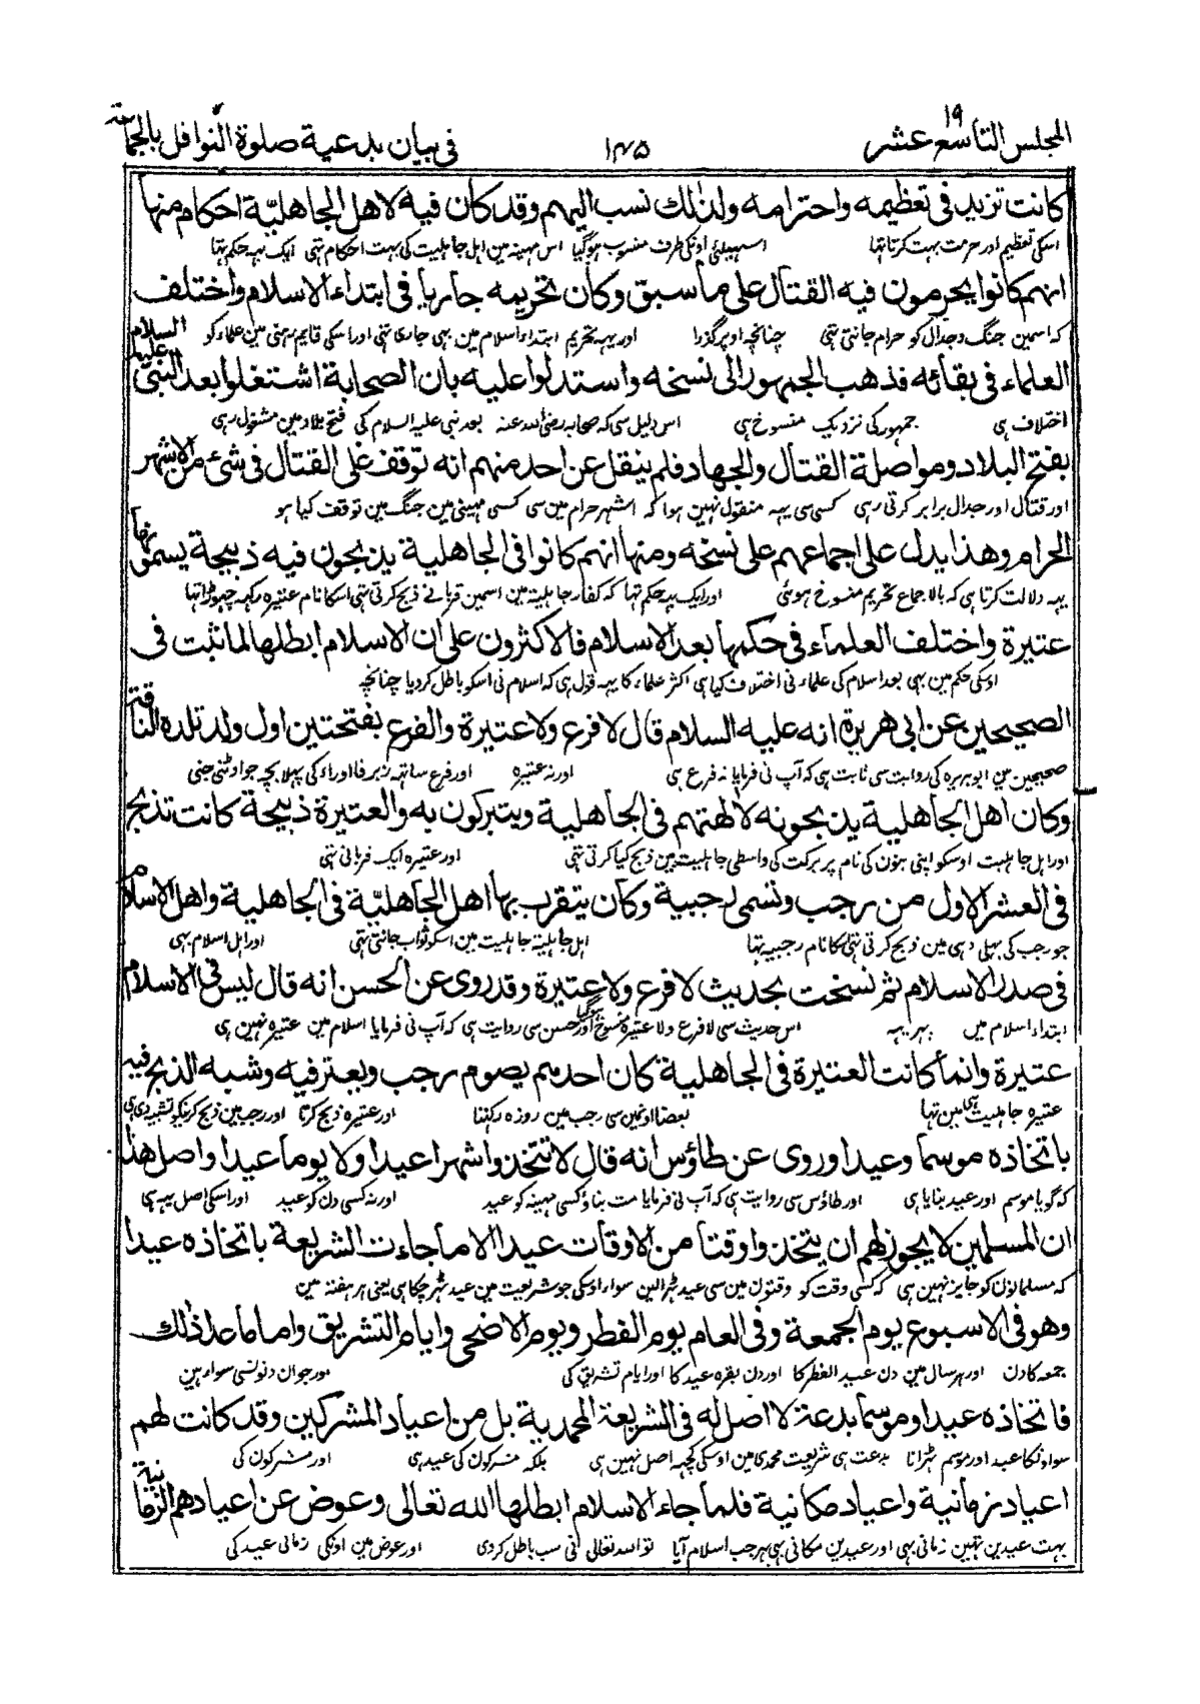 المجلس التاسع عشر ١٩
١٤٥
فى بيان بدعية صلوة النوافل بالجماعة
كانت تزيد فى تعظيمه واحترامه ولذلك نسب اليهم وقد كان فيه لاهل الجاهلية احكام منها
اسكى تعظيم اور حرمت بہت كرتا تہا اسيليئ اونكى طرف منسوب ہو گيا اس مہينہ مين اہل جاہليت كى بہت احكام تہى ايك يہہ حكم تہا
انهم كانوا يحرمون فيه القتال على ما سبق وكان تحريمه جاريا فى ابتداء الاسلام واختلف
كہ اسمين جنگ و جدال كو حرام جانتى تہى چنانچہ اوپر گزرا اور يہہ تحريم ابتداء اسلام مين بہى جارى تہى اور اسكى قايم رہنى مين علماء كو
العلماء فى بقائه فذهب الجمهور الى نسخه واستدلوا عليه بان الصحابة اشتغلوا بعد النبى عليه السلام
اختلاف ہى جمہور كى نزديك منسوخ ہى اس دليل سى كہ صحابہ رضى اللہ عنہ بعد نبى عليہ السلام كى فتح بلاد مين مشغول رہى
بفتح البلاد ومواصلة القتال والجهاد فلم ينقل عن احد منهم انه توقف على القتال فى شئ من الاشهر
اور قتال اور جدال برابر كرتى رہى كسى سى يہہ منقول نہين ہوا كہ اشہر حرام مين سى كسى مہينى مين جنگ مين توقف كيا ہو
الحرام وهذا يدل على اجماعهم على نسخه ومنها انهم كانوا فى الجاهلية يذبحون فيه ذبيحة يسمونها
يہہ دلالت كرتا ہى كہ بالاجماع تحريم منسوخ ہوئى اور ايك يہہ حكم تہا كہ كفار جاہليت مين اسمين قربانى ذبح كرتى تہى اسكا نام عتيرہ ركہہ چہوڑا تہا
عتيرة واختلف العلماء فى حكمها بعد الاسلام فالاكثرون على ان الاسلام ابطلها لما ثبت فى
اوسكى حكم مين بہى بعد اسلام كى علماء نى اختلاف كيا ہى اكثر علماء كا يہہ قول ہى كہ اسلام نى اسكو باطل كرديا چنانچہ
الصحيحين عن ابى هريرة انه عليه السلام قال لا فرع ولا عتيرة والفرع بفتحتين اول ولد تلده الناقة
صحيحين مين ابو ہريرہ كى روايت سى ثابت ہى كہ آپ نى فرمايا نہ فرع ہى اور نہ عتيرہ اور فرع ساتہہ زبر فا اور راء كى پہلا بچہ جو اونٹنى جنى
وكان اهل الجاهلية يذبحونه لالهتهم فى الجاهلية ويتبركون به والعتيرة ذبيحة كانت تذبح
اور اہل جاہليت اوسكو اپنى بتون كى نام پر بركت كى واسطى جاہليت مين ذبح كيا كرتى تہى اور عتيرہ ايك قربانى تہى
فى العشر الاول من رجب وتسمى رجبية وكان يتقرب بها اهل الجاهلية فى الجاهلية واهل الاسلام
جو رجب كى پہلى دہى مين ذبح كرتى تہى نام رجبيہ تہا اہل جاہليت جاہليت مين اسكو ثواب جانتى تہى اور اہل اسلام بہى
فى صدر الاسلام ثم نسخت بحديث لا فرع ولا عتيرة وقد روى عن الحسن انه قال ليس فى الاسلام
ابتداء اسلام ميں پہر يہہ اس حديث سى لا فرع ولا عتيرہ منسوخ ہوگيا اور حسن سى روايت ہى كہ آپ نى فرمايا اسلام مين عتيرہ نہين ہى
عتيرة وانما كانت العتيرة فى الجاهلية كان احدهم يصوم رجب ويعتر فيه وشبه الذبح فيه
عتيرہ جاہليت ہى مين تہا بعضا اونمين سى رجب مين روزہ ركہتا اور عتيرہ ذبح كرتا اور رجب مين ذبح كرنيكو تشبيہ دى ہى
باتخاذه موسما وعيدا وروى عن طاؤس انه قال لا تتخذوا شهرا عيدا ولا يوما عيدا واصل هذا
كہ گويا موسم اور عيد بنايا ہى اور طاؤس سى روايت ہى كہ آپ نى فرمايا مت بناؤ كسى مہينہ كو عيد اور نہ كسى دن كو عيد اور اسكى اصل يہہ ہى
ان المسلمين لا يجوز لهم ان يتخذوا وقتا من الاوقات عيدا الا ما جاءت الشريعة باتخاذه عيدا
كہ مسلمانون كو جايز نہين ہى كہ كسى وقت كو وقتون مين سى عيد ٹہرالين سواء اوسكى جو شريعت مين عيد ٹہر چكا ہى يعنى ہر ہفتہ مين
وهو فى الاسبوع يوم الجمعة وفى العام يوم الفطر ويوم الاضحى وايام التشريق واما ما عدا ذلك
جمعہ كا دن اور ہر سال مين دن عيد الفطر كا اور دن بقرہ عيد كا اور ايام تشريق كى اور جو ان دنونسى سواء ہين
فاتخاذه عيدا وموسما بدعة لا اصل له فى الشريعة المحمدية بل من اعياد المشركين وقد كانت لهم
سو اونكا عيد اور موسم ٹہرانا بدعت ہى شريعت محمدى مين اوسكى كچہہ اصل نہين ہى بلكہ مشركون كى عيد ہى اور مشركون كى
اعياد زمانية واعياد مكانية فلما جاء الاسلام ابطلها الله تعالى وعوض عن اعيادهم الزمانية
بہت عيدين تہين زمانى بہى اور عيدين مكانى بہى پہر جب اسلام آيا تو اللہ تعالى نى سب باطل كردى اور عوض مين اونكى زمانى عيد كى